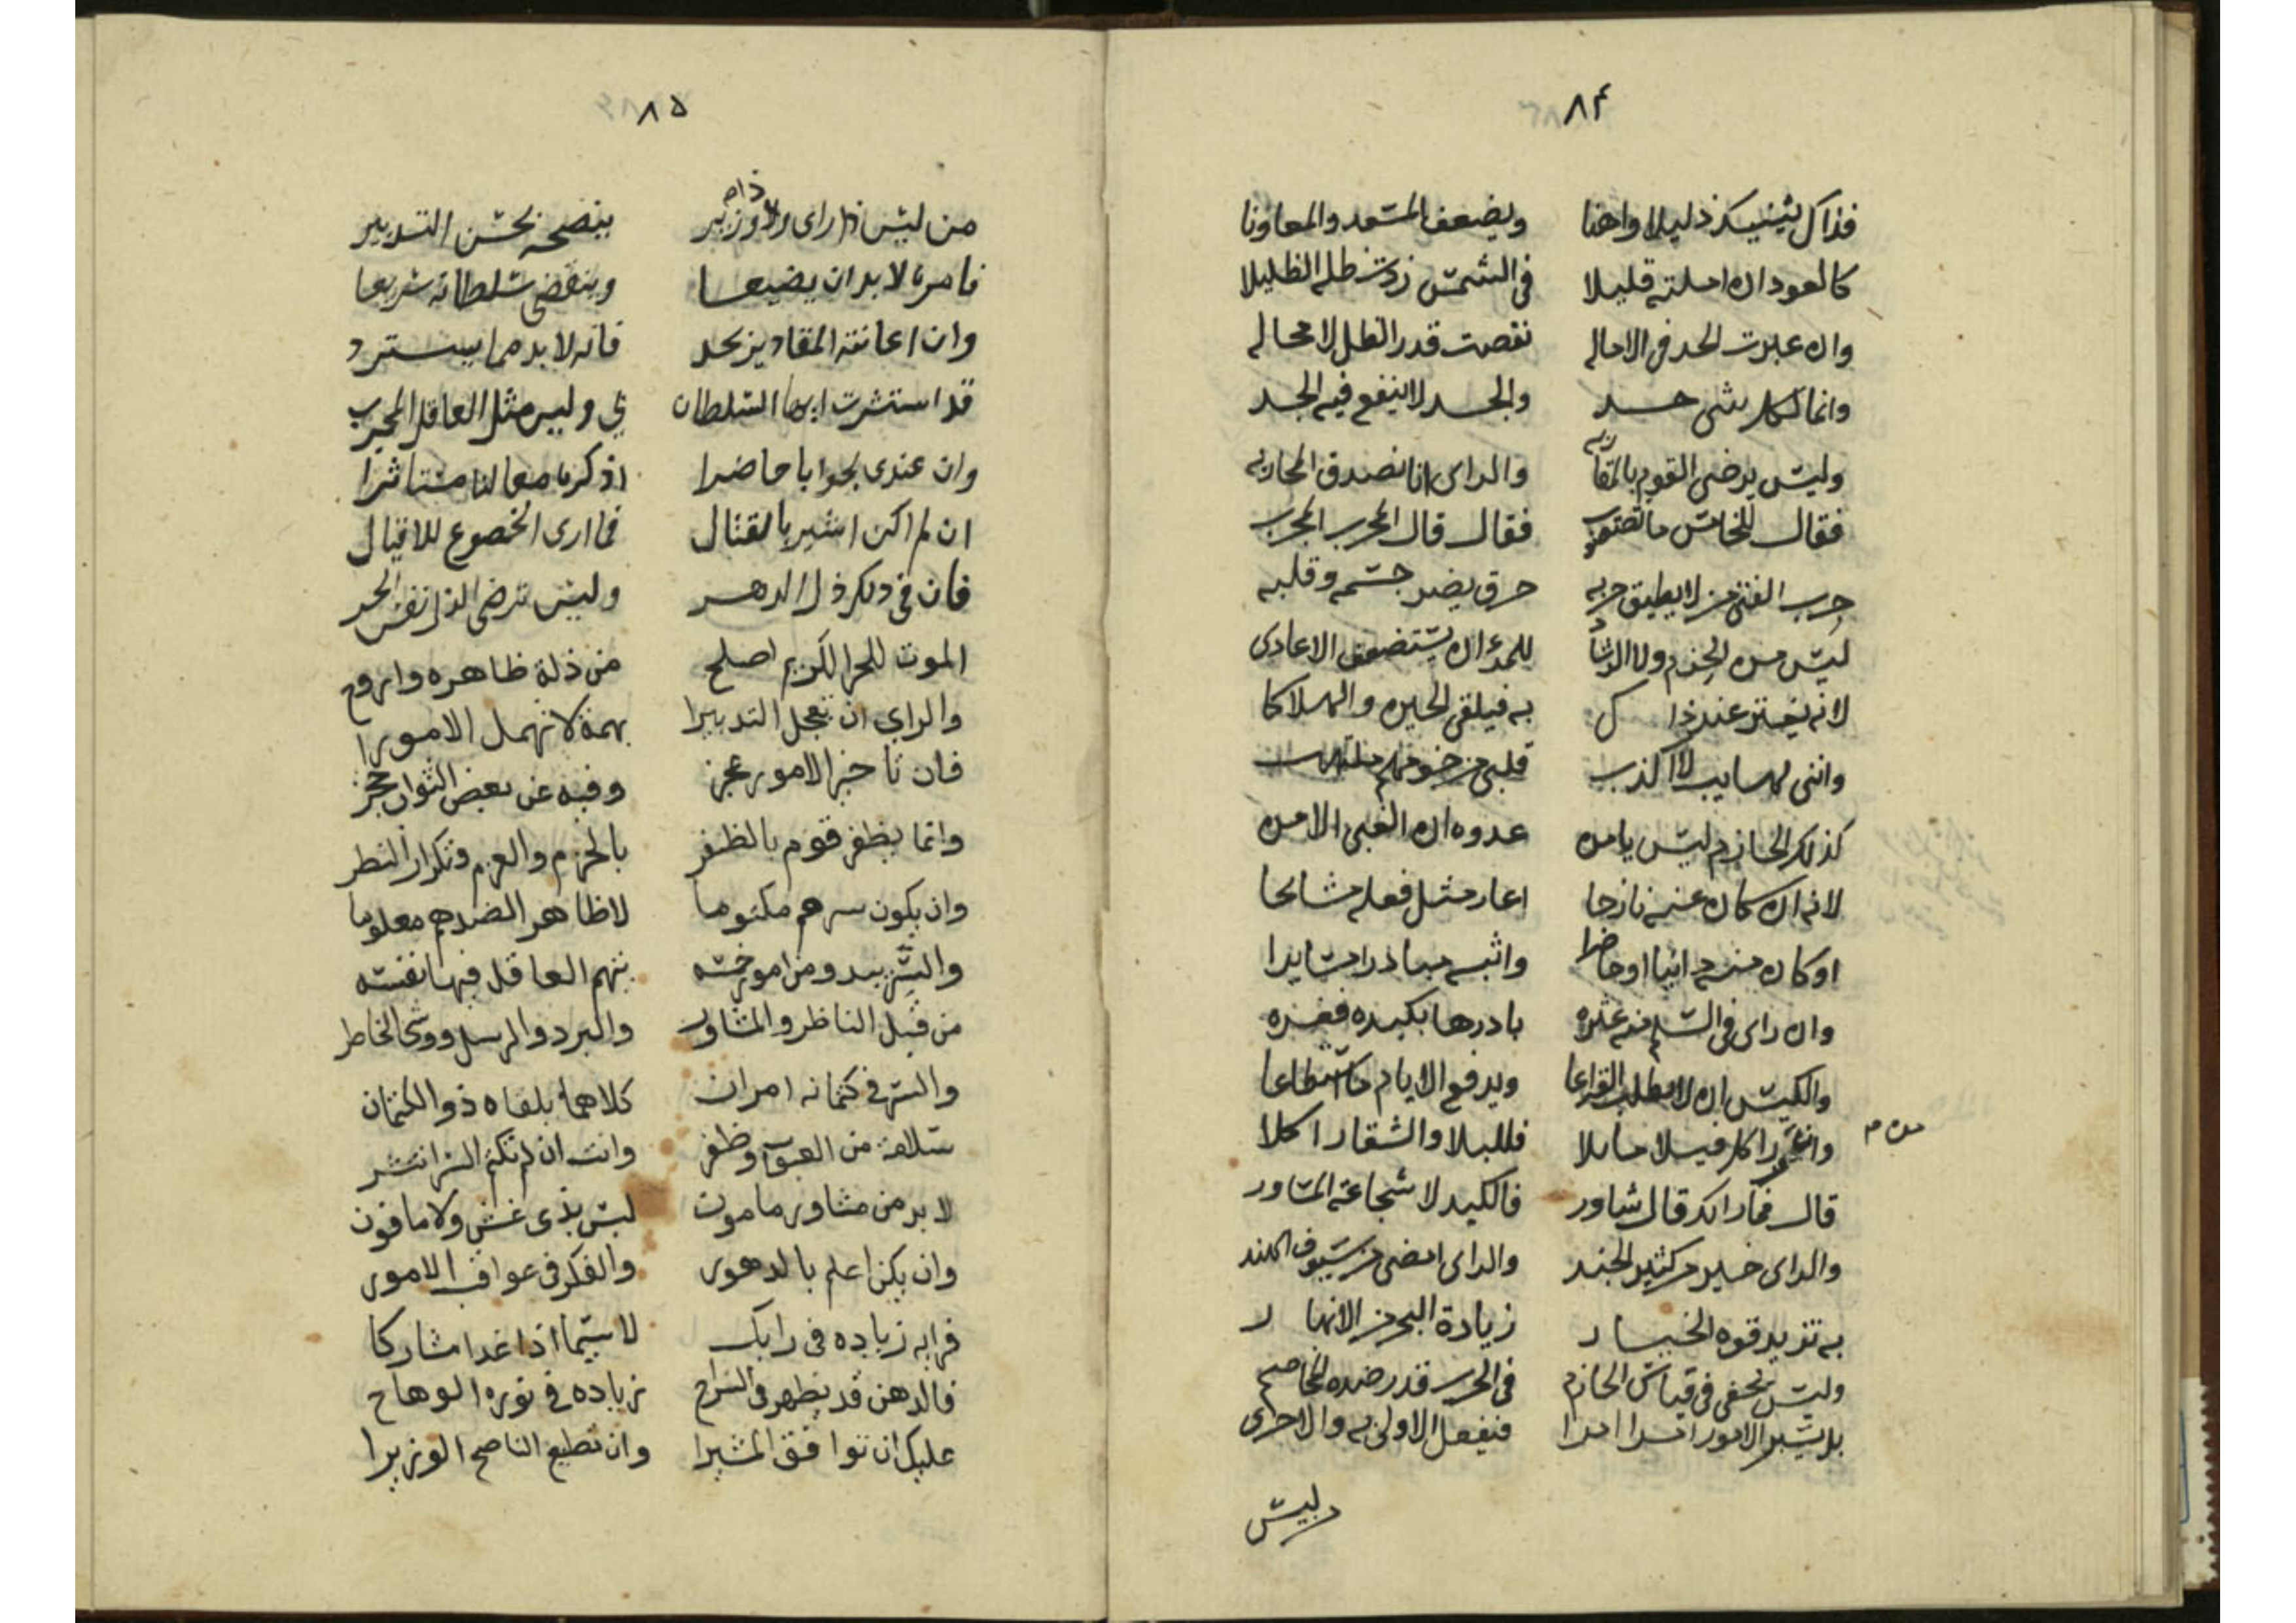 ٨٤
فذاك يثنيك ذليلا واهنا ويضعف المسعد والمعاونا
كالعود ان املته قليلا في الشمس زدت ظله الظليلا
وان عبرت الحد في الاماله نقصت قدر الظل لا محاله
وانما لكل شي حد والجد لا ينفع فيه الجد
وليس يرضى القوم بالمقاربه والراى انا نصدق المحاربه
فقال للخامس ما تصوب فقال قال المجرب المجرب
حرب الفتى من لا يطيق حربه حرق يضر جسمه وقلبه
ليس من الحزم ولا الرشاد للمرء ان يستضعف الاعادى
لانه يغتر عند ذاك به فيلقى الحين والهلاكا
وانني لهايب لا اكذب قلبي من خوفهم ملتهب
كذلك الحازم ليس يامن عدوه ان الغبى الامن
لانه ان كان عنه نازحا اعار مثل فعله مشائحا
او كان منه دانيا او حاضرا واثبه مبادرا مسايرا
وان راى في السلم منه غره بادرها بكيده فغره
والكيس ان لا يطلب القراعا ويدفع الايام ما استطاعا
وان غدا كل فيلا مايلا فللبلا والشقا راكلا
من م
قال فما رايك قال شاور فالكيد لا شجاعة المساور
والراى خير من كثير الجند والراى امضى من سيوف الهند
به تزيد قوه الخيار زيادة البحر من الانهار
وليس يخفى في قياس الحازم في الحرب قدر ضده المخاصم
بل يسبر الامور امرا امرا فيفعل الاولى به والاحرى
وليس
٨٥
من ليس ذا راى ولا وزير ذا م ينصحه بحسن التدبير
فامره لا بد ان يضيعا وينقضى سلطانه سريعا
وان اعانته المقادير بجد فانه لا بد مما يسترد
قد استشرت ايها السلطان بي وليس مثل العاقل المجرب
وان عندى لجوابا حاضرا اذكره معالنا مساثرا
ان لم اكن اشير بالقتال فما ارى الخضوع للاقيال
فان في ذلك ذل الدهر وليس ترضى الذل نفس الحر
الموت للحر الكريم اصلح من ذلة ظاهره واروح
والراي ان تعجل التدبيرا بهمة لا تهمل الامورا
فان تاخير الامور عجز وفيه عن بعض الثواب حجز
وانما يظفر قوم بالظفر بالحزم والعزم وتكرار النظر
وان يكون سرهم مكتوما لا ظاهر الضدهم معلوما
والسر يبدو من امور خمسه يتهم العاقل فيها نفسه
من قبل الناظر والمشاور والبرد والرسل ووشى الخاطر
والسر في كتمانه امران كلاهما يلقاه ذو الكتمان
سلامة من العيوب وظفر وانت ان لم تكتم السر انتشر
لا بد من مشاور مامون ليس بذى غش ولا مافون
وان يكن اعلم بالدهور والفكر في عواقب الامور
فرايه زياده في رايك لا سيما اذا غدا مشاركا
فالدهن قد يظهر في السراج زياده في نوره الوهاج
عليك ان توافق المشيرا وان تطيع الناصح الوزيرا